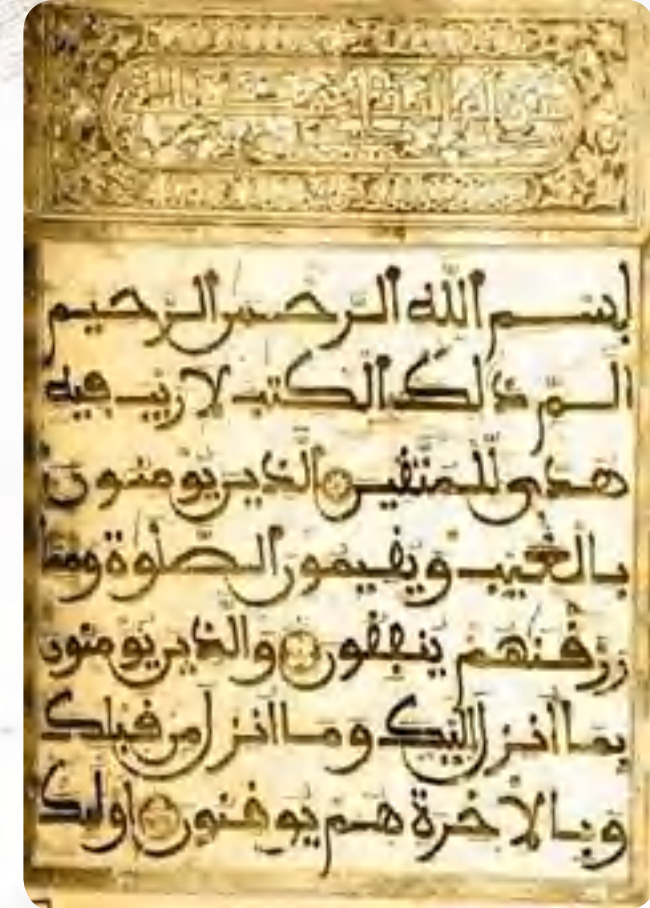 بسم الله الرحمن الرحيم
الم ذلك الكتب لا ريب فيه
هدى للمتقين الذين يومنون
بالغيب ويقيمون الصلوة ومما
رزقنهم ينفقون والذين يومنون
بما أنزل إليك وما أنزل من قبلك
وبالأخرة هم يوقنون أوليك